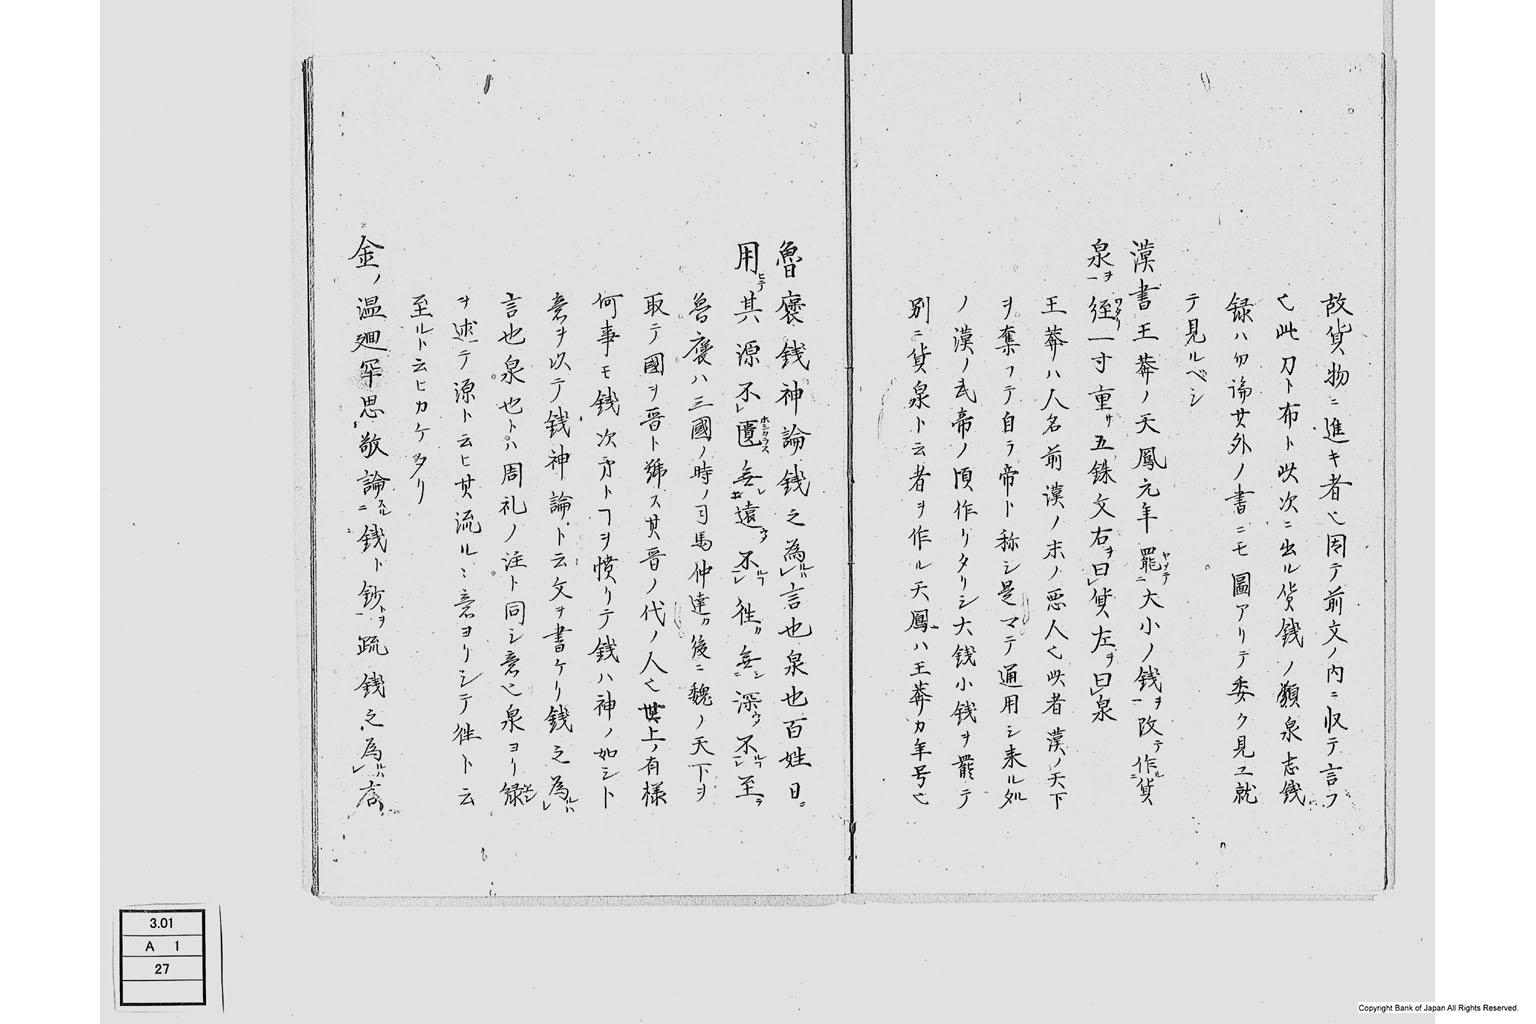 故貨物ニ進キ者ヒ因テ前文ノ内ニ収テ言フ
ヒ此刀ト布ト此次ニ出ル貨銭ノ類泉志銭
録ハ勿論其外ノ書ニモ圖アリテ委ク見エ就
テ見ルベシ
漢書王莽ノ天鳳元年罷ヤメテ二大小ノ銭ヲ一改テ作ル二貨
泉ヲ一径ワタリ一寸重サ五銖文右ヲ曰レ貨左ヲ曰レ泉
王莽ハ人名前漢ノ末ノ悪人ヒ此者漢ノ天下
ヲ奪フテ自ラ帝ト称シ是マテ通用シ来ル処
ノ漢ノ武帝ノ頃作リタリシ大銭小銭ヲ罷テ
別ニ貨泉ト云者ヲ作ル天鳳ハ王莽カ年号ヒ
魯褒銭神論銭之為ルハレ言也泉也百姓日ニ
用ヒテ其源不レ匱ホシクラス無レ遠ウ不ルフレ徃カ無シニ深ウ不ルフレ至ラ
魯褒ハ三國ノ時ノ司馬仲達カ後ニ魏ノ天下ヲ
取テ國ヲ晋ト号ス其晋ノ代ノ人ヒ世上ノ有様
何事モ銭次第トヿヲ憤リテ銭ハ神ノ如シト
意ヲ以テ銭神論ト云文ヲ書ケリ銭之為ルハレ
言也泉也トハ周礼ノ注ト同シ意ヒ泉ヨリ縁エン
ヲ述テ源ト云ヒ其流ルヽ意ヨリシテ徃ト云
至ルト云ヒカケタリ
金ノ温廻罕思敬論スルニ銭ト鈔トヲ一疏銭之為ルハレ
3.01
A 1
27
Copyright Bank of Japan All Rights Reserved.